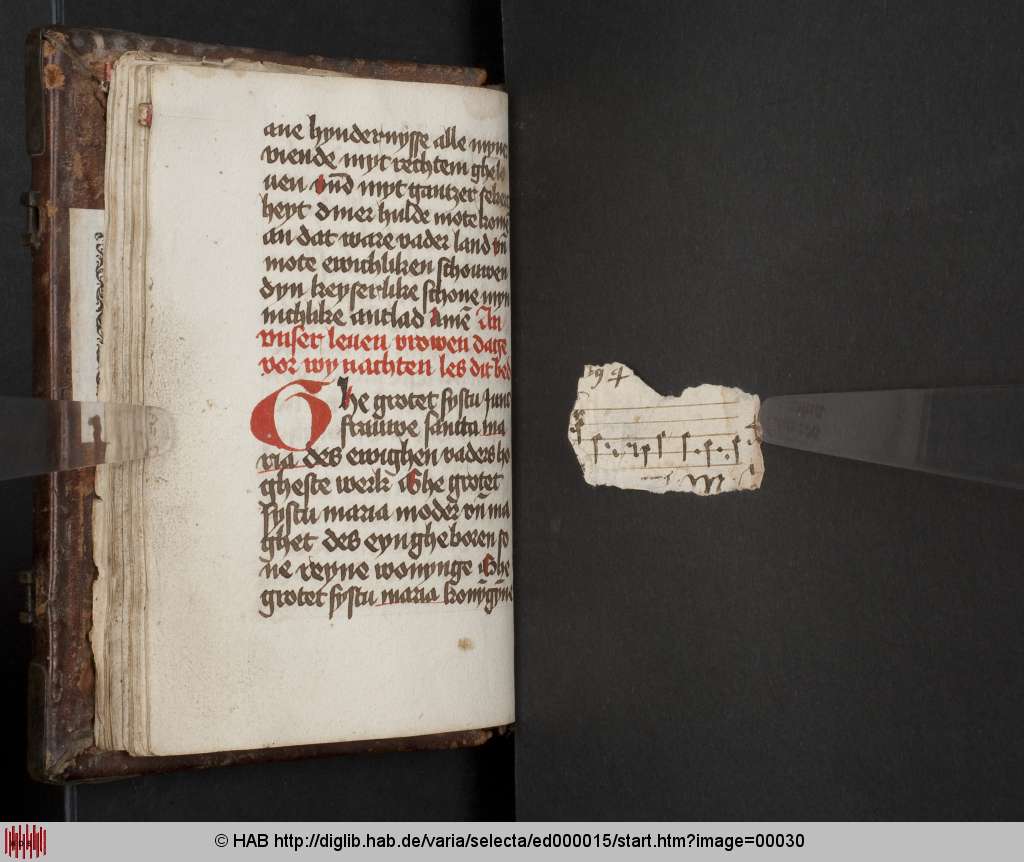 ane hyndernysse alle myne
viende myt rechtem ghelo
uen vnd myt gantzer seker
heyt diner hulde mote kome
an dat ware vader land vn̄
mote ewichliken schouwen
dyn keyserlike schone myn
nichlike antlad Amē An
vnser leuen vrowen dage
vor wynachten les dit bed
Ghe grotet systu Junc
frauwe sancta ma
ria des ewighen vaders ho
gheste werk Ghe grotet
systu maria moder vn̄ ma
ghet des eyngheboren so
ne reyne wonynge Ghe
grotet systu maria konȳgȳne
© HAB http://diglib.hab.de/varia/selecta/ed000015/start.htm?image=00030